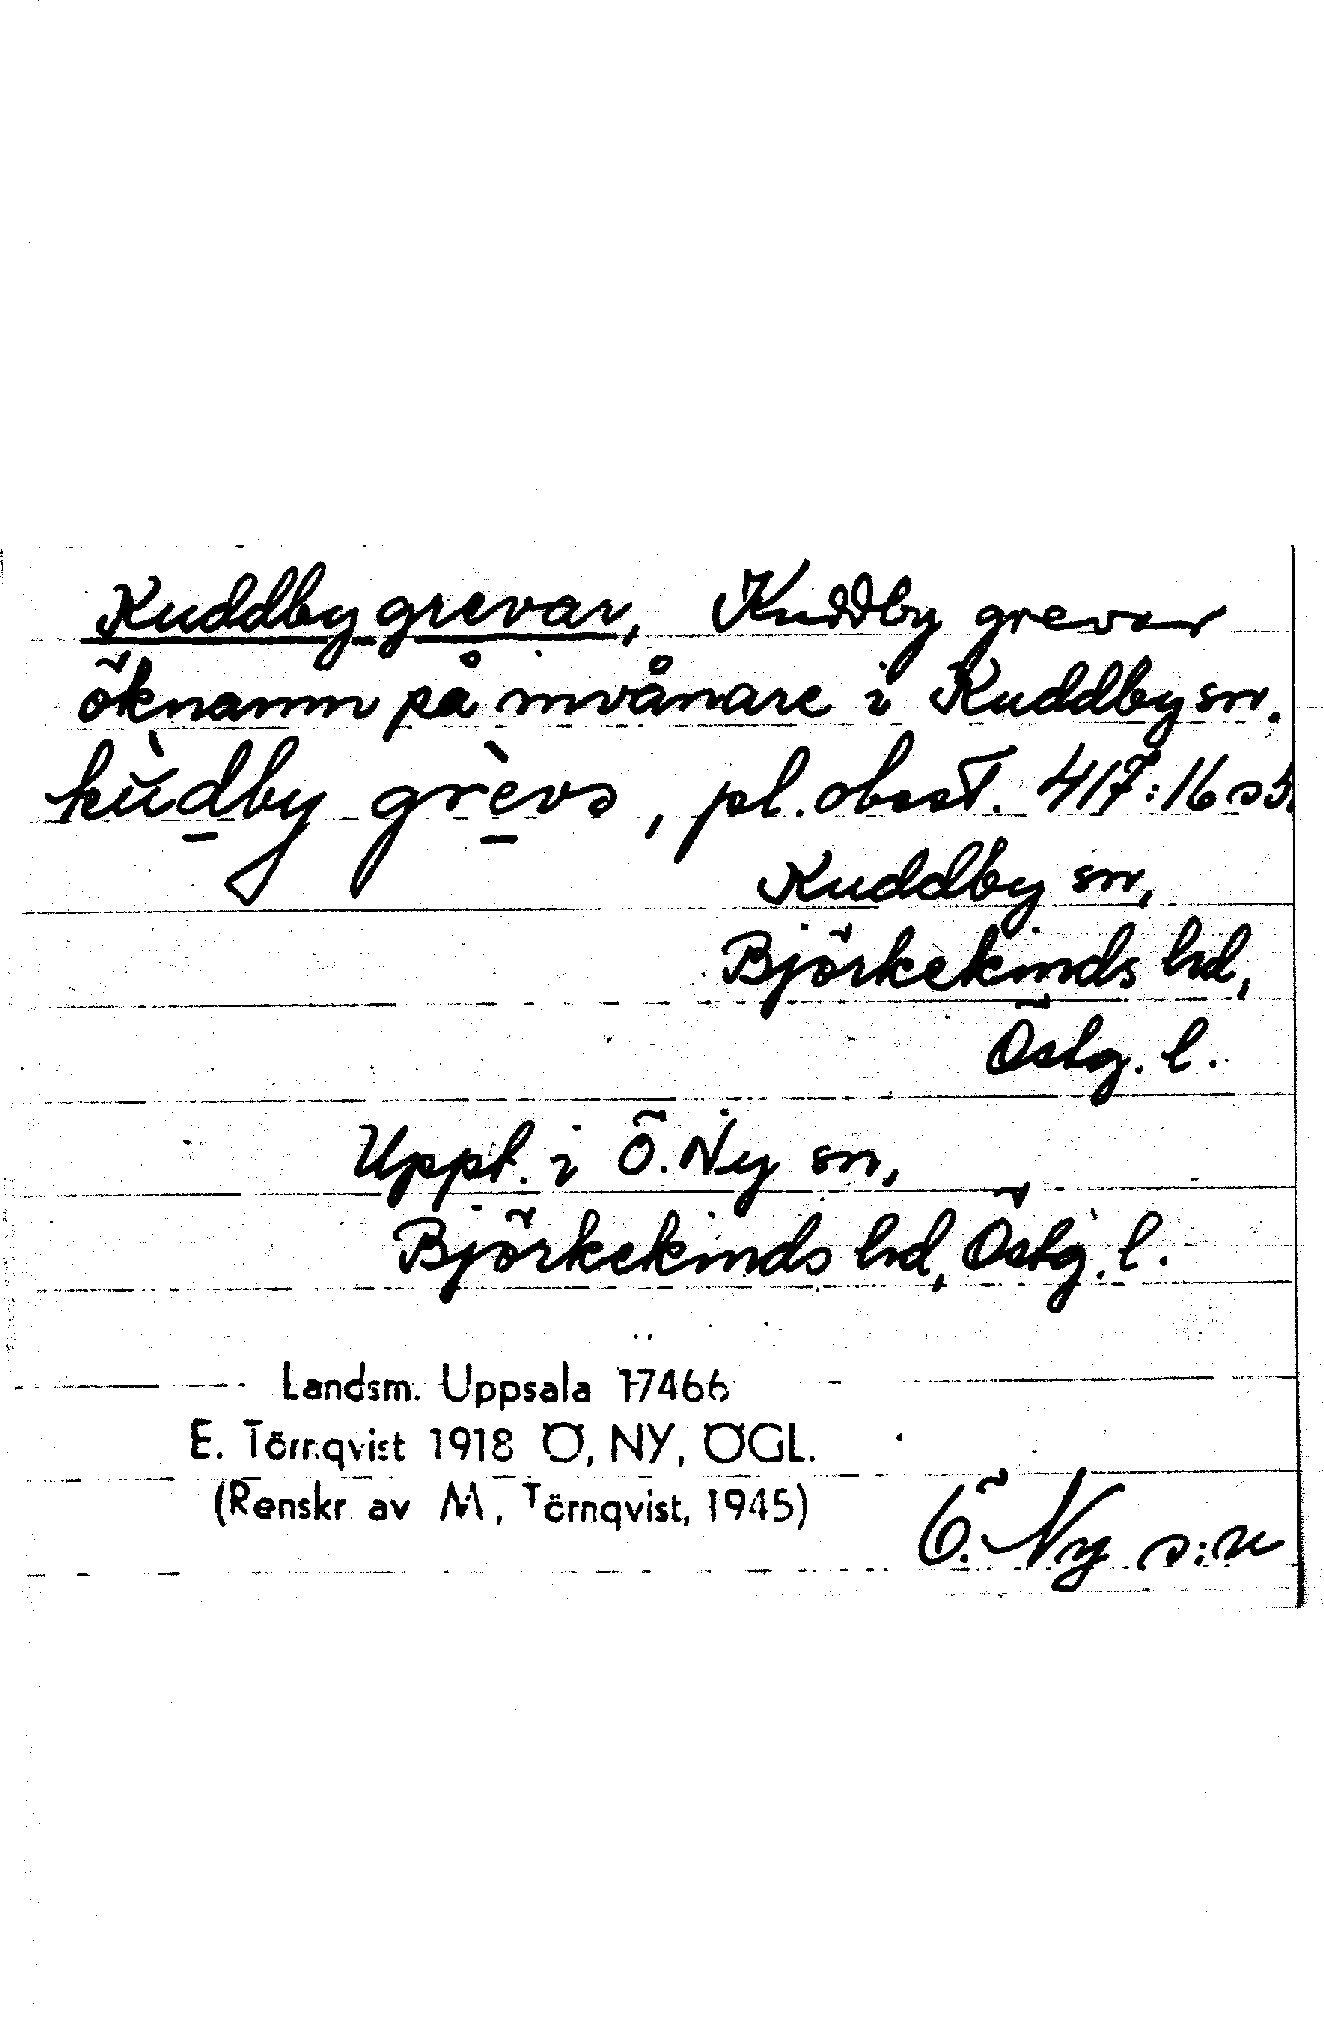 Kuddby grevar, Kuddby grevar
öknamn på invånare i Kuddby sn.
kùdby grèvo, pl. obest. 417:16 s 5.
Kuddby sn,
Björkekinds hd,
Östg. l.
Uppt. i Ö. Ny sn,
Björkekinds hd, Östg. l.
Landsm. Uppsala 17466
E. Törnqvist 1918 Ö, NY, ÖGL.
(Renskr av M, Törnqvist, 1945)
Ö. Ny s:n